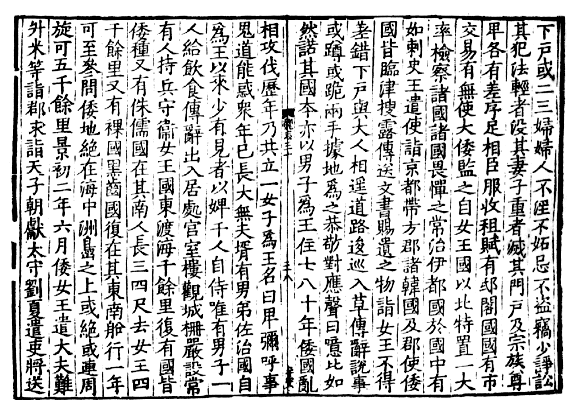 下戶或二三婦婦人不淫不妒忌不盜竊少諍訟
其犯法輕者沒其妻子重者滅其門戶及宗族尊
卑各有差序足相臣服收租賦有邸閣國國有市
交易有無使大倭監之自女王國以北特置一大
率檢察諸國諸國畏憚之常治伊都國於國中有
如刺史王遣使詣京都帶方郡諸韓國及郡使倭
國皆臨津搜露傳送文書賜遺之物詣女王不得
差錯下戶與大人相逢道路逡巡入草傳辭說事
或蹲或跪兩手據地為之恭敬對應聲曰噫比如
然諾其國本亦以男子為王住七八十年倭國亂
相攻伐歷年乃共立一女子為王名曰卑彌呼事
鬼道能惑衆年已長大無夫壻有男弟佐治國自
為王以來少有見者以婢千人自侍唯有男子一
人給飲食傳辭出入居處宮室樓觀城柵嚴設常
有人持兵守衞女王國東渡海千餘里復有國皆
倭種又有侏儒國在其南人長三四尺去女王四
千餘里又有裸國黑齒國復在其東南船行一年
可至參問倭地絕在海中洲島之上或絕或連周
旋可五千餘里景初二年六月倭女王遣大夫難
升米等詣郡求詣天子朝獻太守劉夏遣吏將送